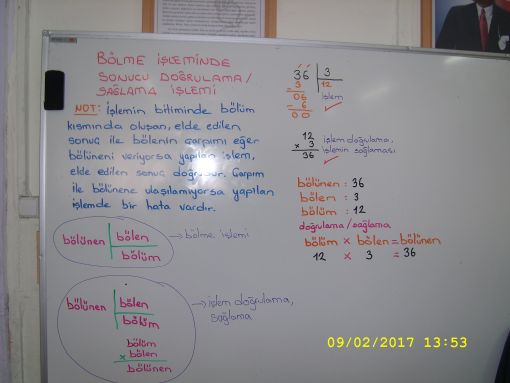 BÖLME İŞLEMİNDE
SONUCU DOĞRULAMA/
SAĞLAMA İŞLEMİ
NOT: İşlemin bitiminde bölüm
kısmında oluşan, elde edilen
sonuç ile bölenin çarpımı eğer
bölüneni veriyorsa yapılan işlem,
elde edilen sonuç doğrudur. Çarpım
ile bölünene ulaşılamıyorsa yapılan
işlemde bir hata vardır.
bölünen bölen
bölüm
→ bölme işlemi
bölünen bölen
bölüm
→ işlem doğrulama,
sağlama
bölüm
x bölen
bölünen
36 3
3 12
06 işlem
- 6
00
12
x 3
36
işlem doğrulama,
işlemin sağlaması
bölünen : 36
bölen : 3
bölüm : 12
doğrulama/sağlama
bölüm x bölen = bölünen
12 x 3 = 36
09/02/2017 13:53